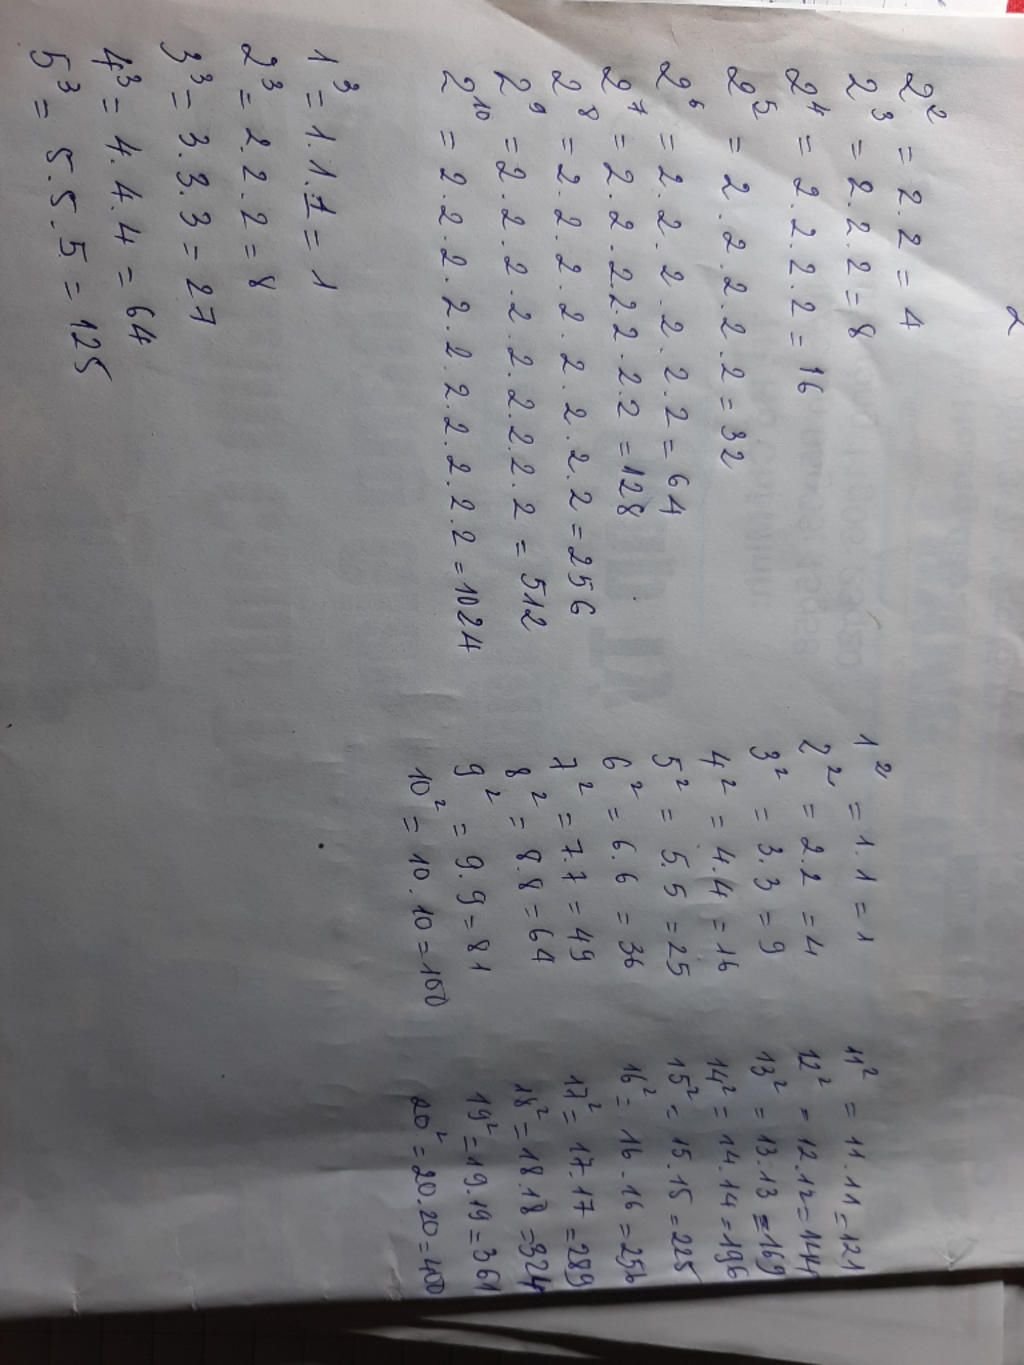 2² = 2.2 = 4
2³ = 2.2.2 = 8
2⁴ = 2.2.2.2 = 16
2⁵ = 2.2.2.2.2 = 32
2⁶ = 2.2.2.2.2.2 = 64
2⁷ = 2.2.2.2.2.2.2 = 128
2⁸ = 2.2.2.2.2.2.2.2 = 256
2⁹ = 2.2.2.2.2.2.2.2.2 = 512
2¹⁰ = 2.2.2.2.2.2.2.2.2.2 = 1024
1³ = 1.1.1 = 1
2³ = 2.2.2 = 8
3³ = 3.3.3 = 27
4³ = 4.4.4 = 64
5³ = 5.5.5 = 125
1² = 1.1 = 1
2² = 2.2 = 4
3² = 3.3 = 9
4² = 4.4 = 16
5² = 5.5 = 25
6² = 6.6 = 36
7² = 7.7 = 49
8² = 8.8 = 64
9² = 9.9 = 81
10² = 10.10 = 100
11² = 11.11 = 121
12² = 12.12 = 144
13² = 13.13 = 169
14² = 14.14 = 196
15² = 15.15 = 225
16² = 16.16 = 256
17² = 17.17 = 289
18² = 18.18 = 324
19² = 19.19 = 361
20² = 20.20 = 400